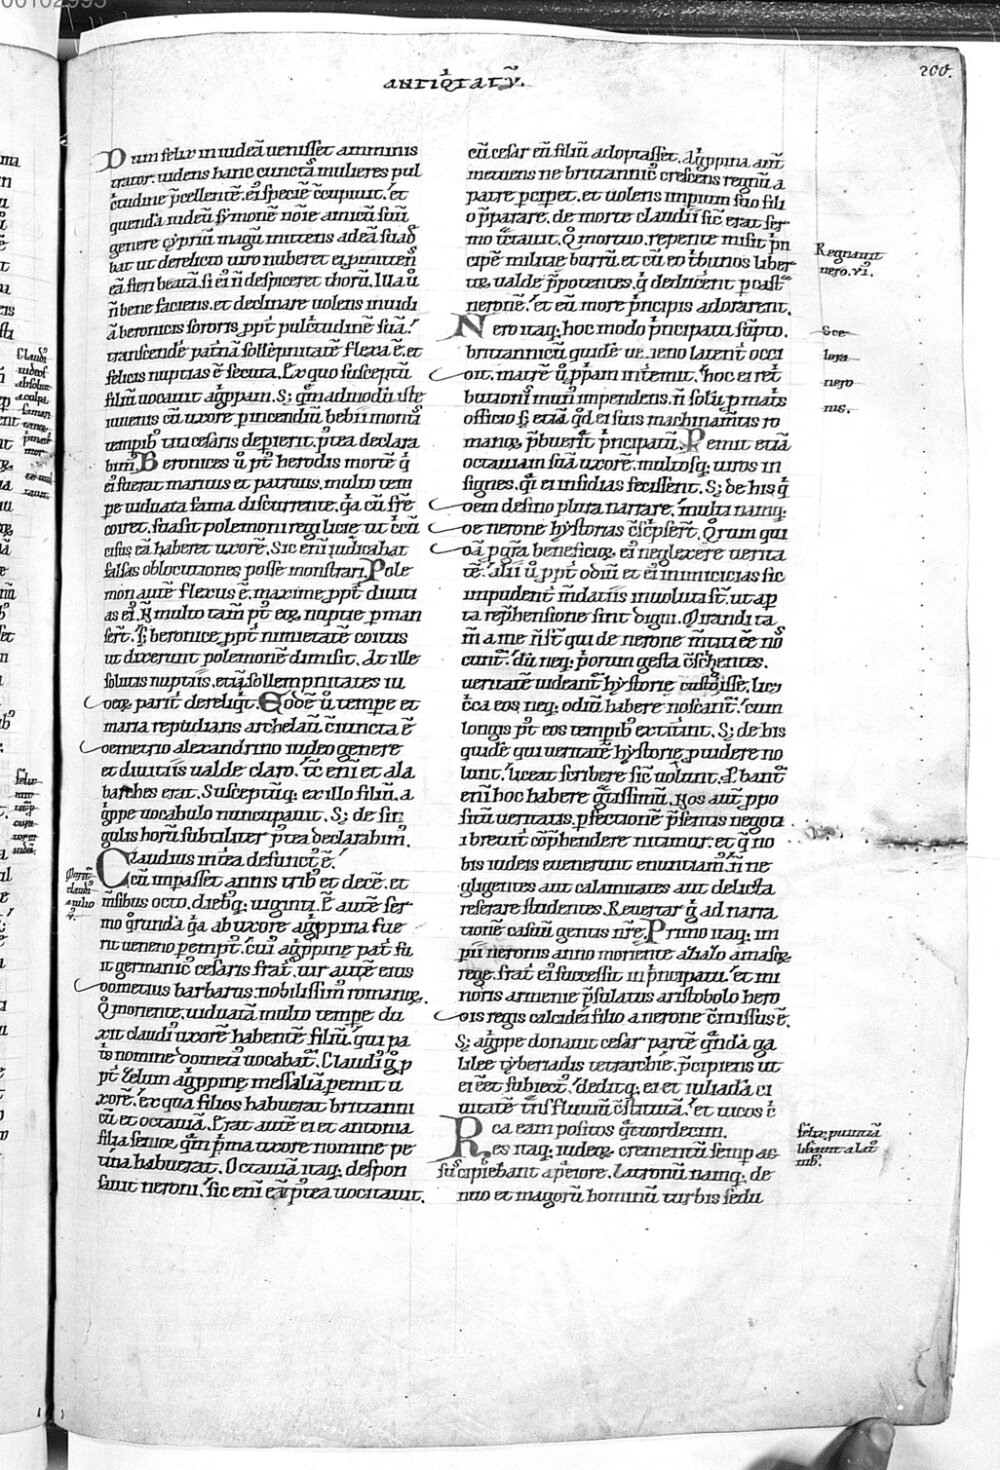 ANTIQ̇TATV̄.
200.
Dum felix in iudeā uenisset amminis
trator. uidens hanc cunctaꝝ mulieres pul
c̓tudine p̄cellentē. ei᷒ speciē c̄cupiuit. et
quendā iudeū symonē noīe amicū suū
genere cypriū magū mittens ad eā suad᷒
bat ut derelicto uiro nuberet ei. pmittens
eā fieri beatā. si eī n̄ despiceret thorū. Illa ū
n̄ bene faciens. et declinare uolens inuidi
ā beronicis sororis. ppt̓ pulc̓tudinē suā.
transcende patnā sollēpnitatē flexa ē. et
felicis nuptias ē secuta. Ex quo susceptū
filiū uocauit agrippam. S; qmadmodū iste
iuuenis cū uxore p incendiū bebii montis
temporib᷒ titi cesaris depierit. p᷒tea declara
bim᷒. Beronices ū p᷒t herodis mortē q̇
ei᷒ fuerat maritus et patruus. multo tem
pe uiduata fama discurrente. q̇a cū frē
coiret. suasit polemoni regi licie ut c̓cū
cisus eā haberet uxorē. Sic enī iudicabat
falsas oblocutiones posse monstrari. Pole
mon autē flexus ē. maxime ppt̓ diuiti
as ei᷒. N̄ multo tam̄ p᷒t eoꝝ nuptie pman
serт̄. S; beronice ppt̓ nimietatē coitus
ut dixerunt polemonē dimisit. At ille
solutis nuptiis. etiā sollempnitates iu
deoꝝ parit̓ dereliq̇t. Eodē ū tempe et
maria repudians archelaū. c̄iuncta ē
demetrio alexandrino iudeo genere
et diuitiis ualde claro. tc̄ enī et ala
barches erat. Susceptūq; ex illo filiū. a
grippe uocabulo nuncupauit. S; de sin
gulis horū subtilit̓ p᷒tea declarabim᷒.
Claudius int̓ea defunct᷒ ē.
cū impasset annis trib᷒ et decē. et
m̄sibus octo. dieb᷒q; uiginti. Et autē ser
mo q̇rundā q̇a ab uxore agrippina fue
rit ueneno pempt᷒. cui᷒ agrippinę pat̓ fu
it germanic᷒ cesaris frat̓. uir autē eius
dometius barbarus. nobilissim᷒ romanoꝝ.
Q̇ moriente. uiduatā multo tempe du
xit claudi᷒ uxorē habentē filiū. qui pa
t̓s nomine dometi᷒ uocabat᷒. Claudi᷒ q̇ p
pt̓ zelum agrippinę messalinā pemit u
xorē. ex qua filios habuerat brittanni
cū et octauiā. Erat autē ei et antonia
filia senior. qm̄ p̓ma uxore nomine pe
tina habuerat. Octauiā itaq; despon
sauit neroni. sic enī eū p᷒tea uocitauit.
cū cesar eū filiū adoptasset. Agrippina aut̄
metuens ne brittannic᷒ crescens regnū a
patre pcipet. et uolens impium suo fili
o p̄parare. de morte claudii sic̓ erat ser
mo t̄ctauit. Q̇ mortuo. repente misit p̓n
cipē militiae burrū. et cū eo t̓bunos liber
tosq; ualde p̄potentes. q̇ deducent̄ p cast᷒
neronē. et eū more p̓ncipis adorarent.
Nero itaq; hoc modo p̓ncipatu sūpto.
brittannicū quidē ue.neno latent̓ occi
dit. matrē ū ppam int̓emit. hoc ei ret̓
butionis mun᷒ impendens. n̄ solū p mat̓s
officio s; etiā q̇d ei suis machinam̄tis ro
manoꝝ p̄buerit p̓ncipatū. Pemit etiā
octauiam suā uxorē. multosq; uiros in
signes. q̇i ei insidias fecissent. S; de his q̇
dem desino plura narrare. multi namq;
de nerone hystorias c̄sc̓pserт̄. Q̇rum qui
dā pp̄ria beneficia ei᷒ neglexere uerita
tē. alii ū ppt̓ odiū et ei᷒ inimicicias sic
impudent̓ m̄datiis inuoluti sт̄. ut ap̓
ta rep̄hensione sint digni. Mirandi ta
m̄ a me n̄ st̄ qui de nerone m̄titi eē nos
cunt᷒. dū neq; p̓orum gesta c̄sc̓bentes.
ueritatē uideant᷒ hystorie custodisse. lic&
c̓ca eos neq; odiū habere noscant᷒. cum
longis p᷒t eos temporib᷒ extiterint. S; de his
quidē qui ueritatē hystorie p̄uidere no
lunt. liceat scribere sic̓ uolunt. Phant᷒
enī hoc habere gratissimū. Nos aut̄ ppo
situ ueritatis. pfectionē p̄sentis negoti
i breuit̓ c̄p̄hendere nitimur. et q̇ no
bis iudeis euenerunt enuntiam᷒. n̄ ne
gligentes aut calamitates aut delicta
referare studentes. Reuertar q̇ ad narra
tionē casuū gentis nr̄e. Primo itaq; im
pii neronis anno moriente azialo amasoꝝ
rege. frat̓ ei᷒ successit in p̓ncipatu. et mi
noris armenie p̄sulatus aristobolo hero
dis regis calcidei filio a nerone c̄missus ē.
S; agrippe donauit cesar partē q̇ndā ga
lilee tyberiadis tetrarchie. p̄cipiens ut
ei eēt subiect᷒. deditq; ei et iuliadā ci
uitatē t̄ns fluuiū c̄stitutā. et uicos c̓
ca eam positos q̇tuordecim.
Res itaq; iudeoꝝ crementū semp as
sūs cipiebant apetiore. Latronū namq; de
nuo et magorū hominū turbis sedu
Regnauit
nero. vi.
Sce
lera
nero
nis.
felix puniuit
Morit᷒
claudi᷒